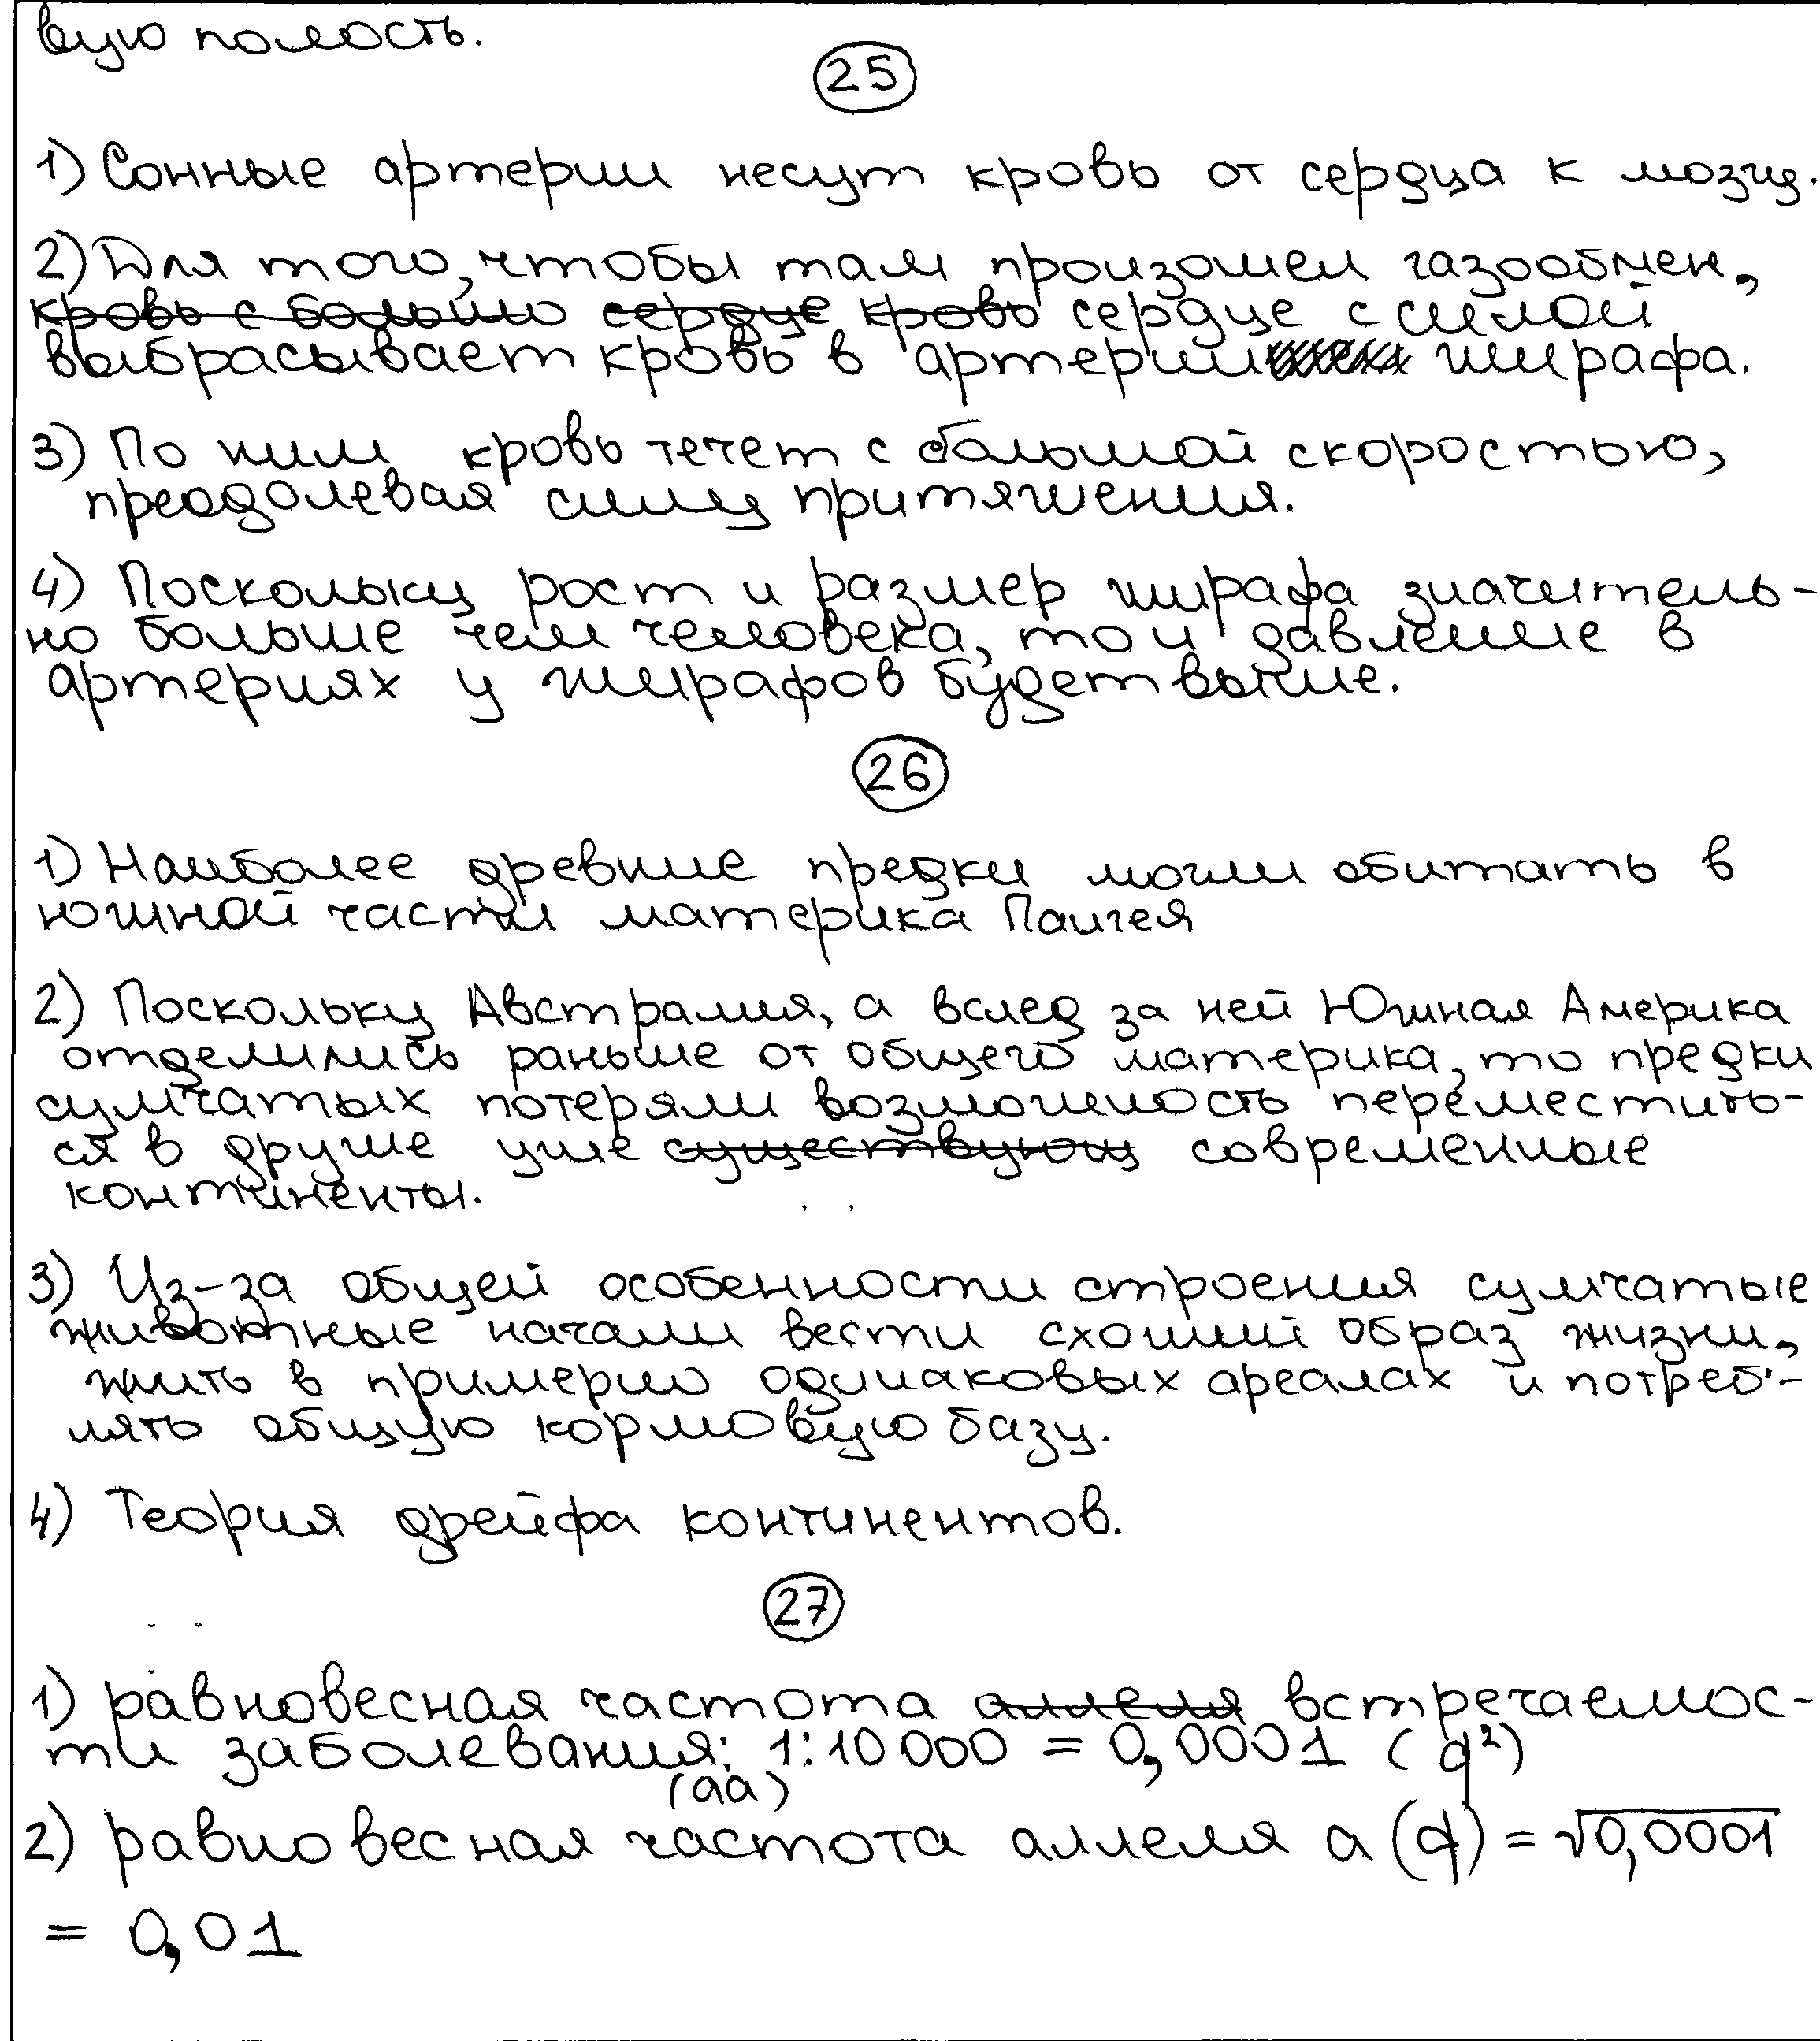 вую полость.
25
1) Сонные артерии несут кровь от сердца к мозгу.
2) Для того, чтобы там произошел газообмен,
кровь с большо сердце кровь сердце с силой
выбрасывает кровь в артерии жирафа.
3) По ним кровь течет с большой скоростью,
преодолевая силу притяжения.
4) Поскольку рост и размер жирафа значитель-
но больше чем человека, то и давление в
артериях у жирафов будет выше.
26
1) Наиболее древние предки могли обитать в
южной части материка Пангея
2) Поскольку Австралия, а вслед за ней Южная Америка
отделились раньше от общего материка, то предки
сумчатых потеряли возможность переместить-
ся в другие уже существующ современные
континенты.
3) Из-за общей особенности строения сумчатые
животные начали вести схожий образ жизни,
жить в примерно одинаковых ареалах и потреб-
лять общую кормовую базу.
4) Теория дрейфа континентов.
27
1) равновесная частота аллеля встречаемос-
ти заболевания: 1:10 000 = 0,0001 (q²)
(aa)
2) равновесная частота аллеля a (q) = √0,0001
= 0,01